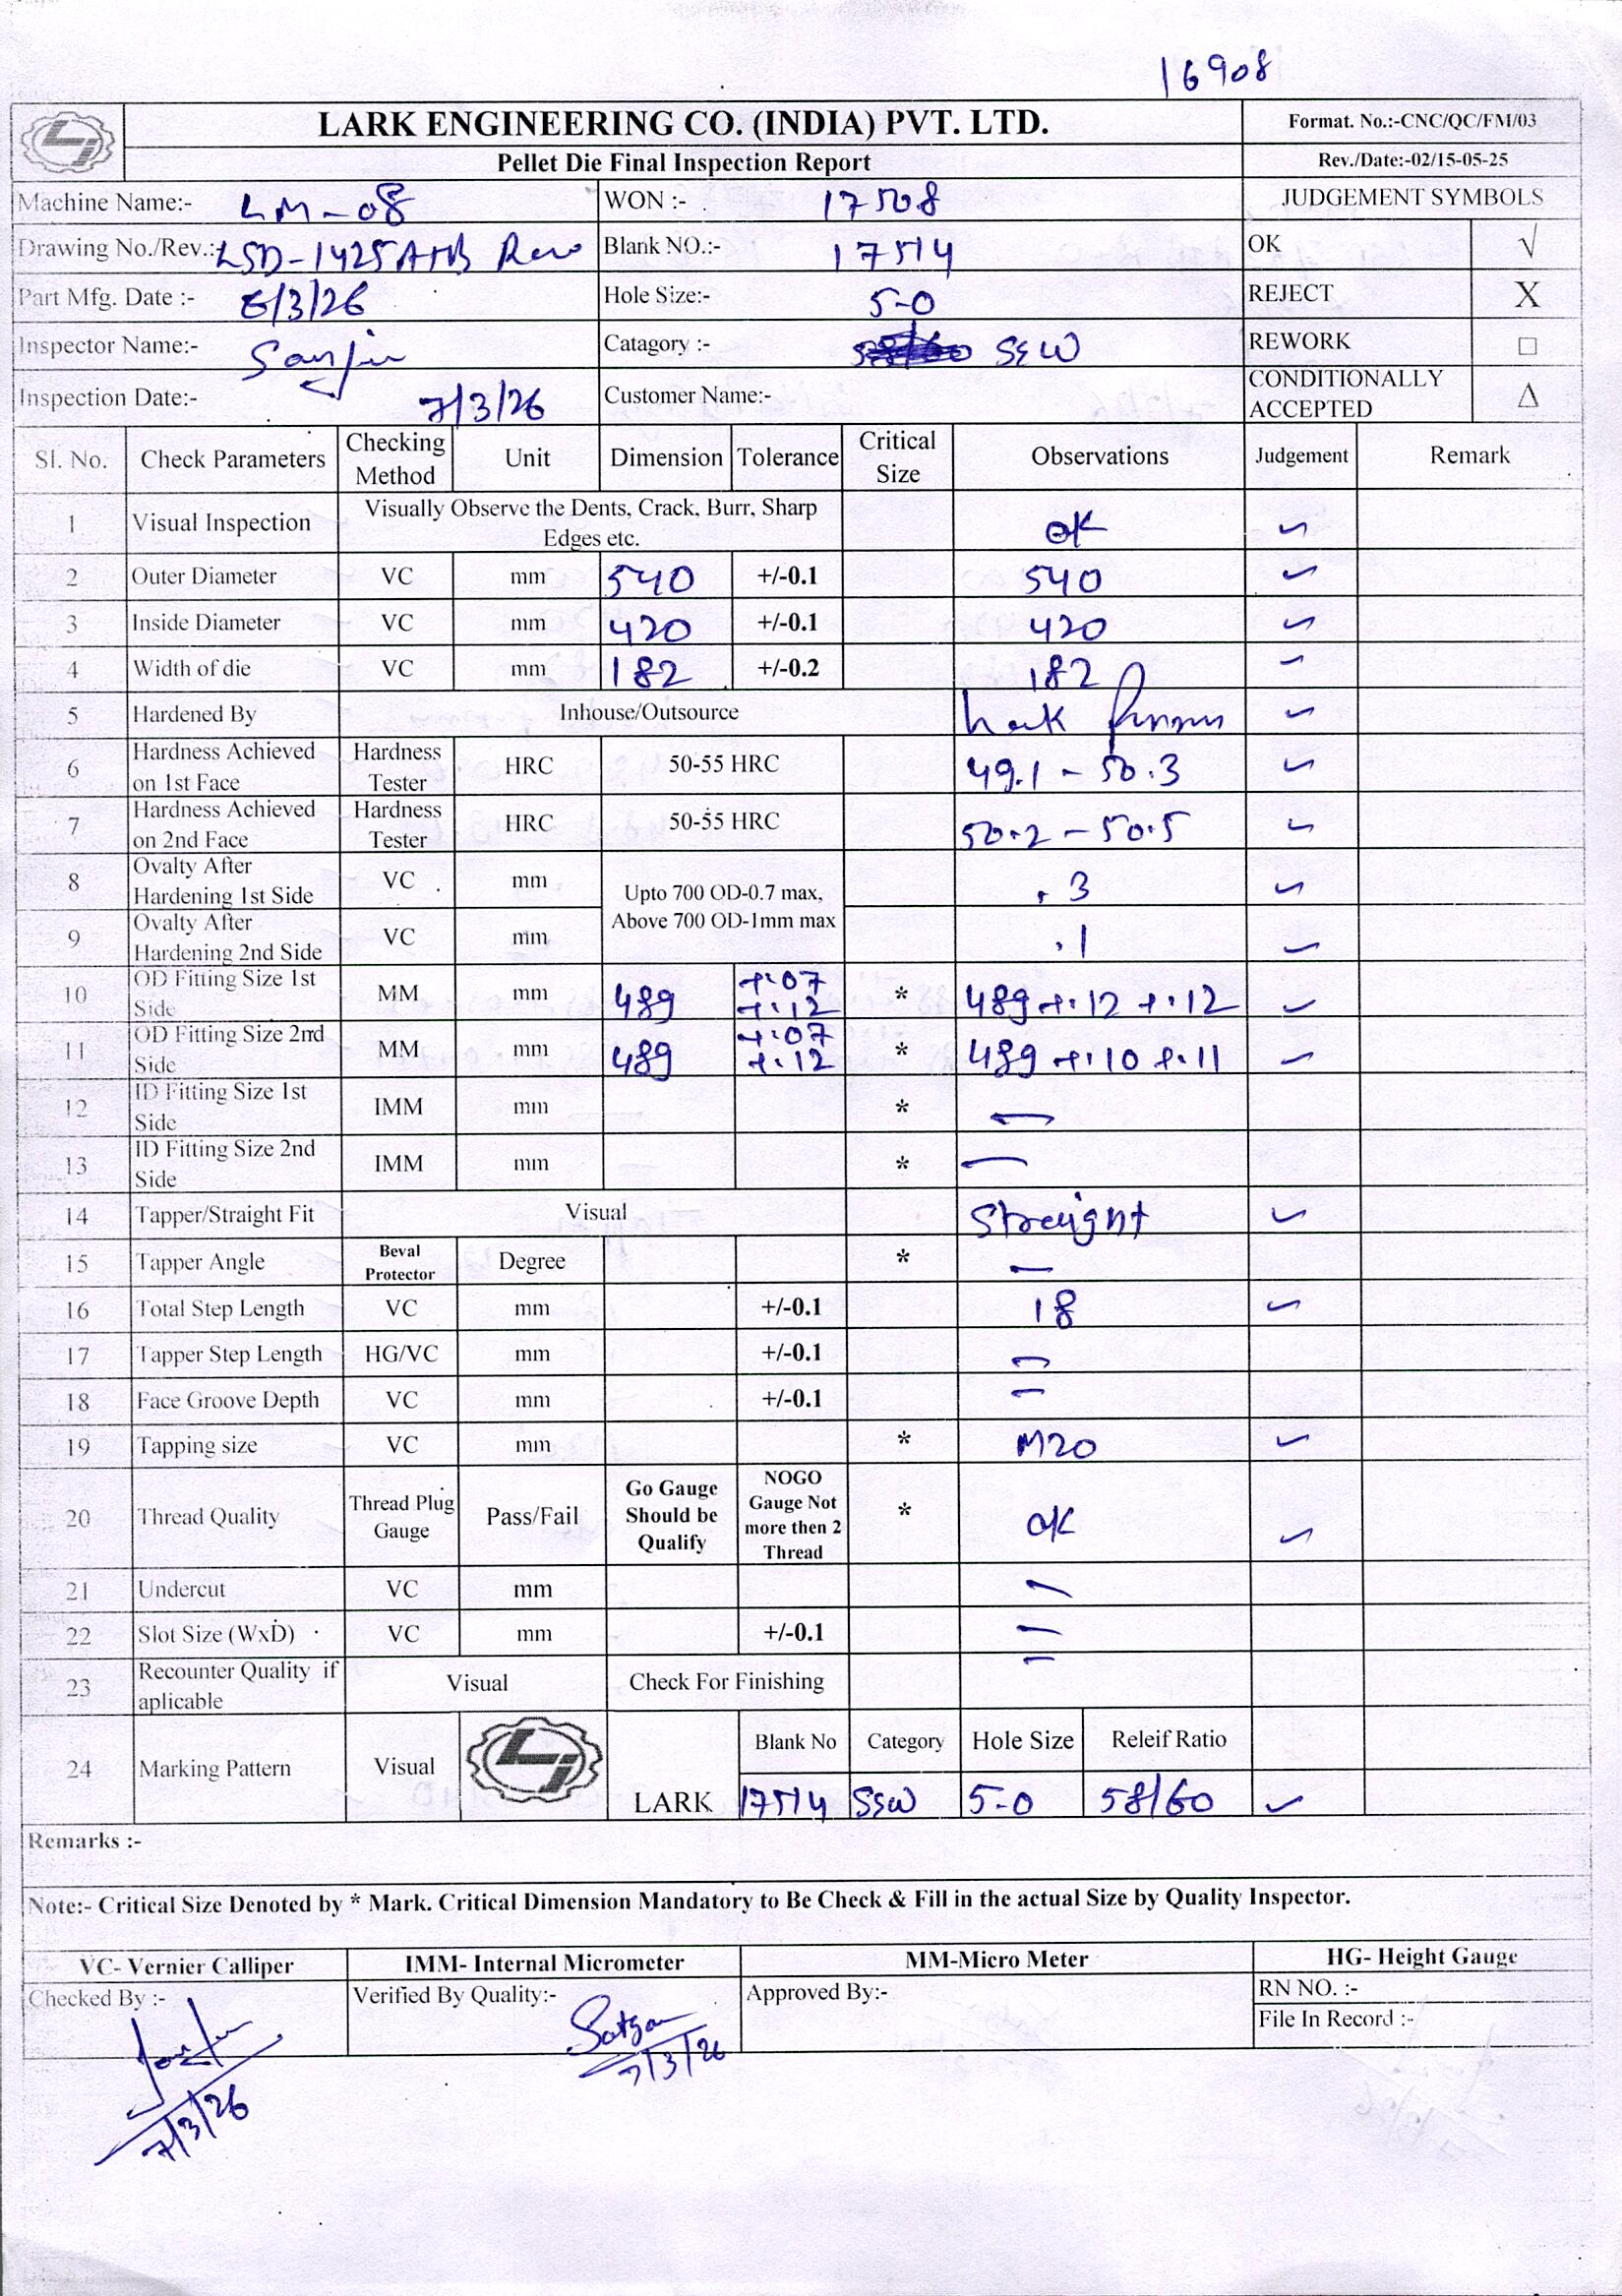 16908
LARK ENGINEERING CO. (INDIA) PVT. LTD.
Format. No.:-CNC/QC/FM/03
Pellet Die Final Inspection Report
Rev./Date:-02/15-05-25
Machine Name:- LM-08 WON :- 17508 JUDGEMENT SYMBOLS
Drawing No./Rev.: LSD-1425 Blank NO.:- 17514 OK √
Part Mfg. Date :- 6/3/26 Hole Size:- 5-0 REJECT X
Inspector Name:- Catagory :- SSW REWORK □
Inspection Date:- 7/3/26 Customer Name:- CONDITIONALLY ACCEPTED Δ
Sl. No. Check Parameters Checking Method Unit Dimension Tolerance Critical Size Observations Judgement Remark
1 Visual Inspection Visually Observe the Dents, Crack, Burr, Sharp Edges etc. OK ✓
2 Outer Diameter VC mm 540 +/-0.1 540 ✓
3 Inside Diameter VC mm 420 +/-0.1 420 ✓
4 Width of die VC mm 182 +/-0.2 182 ✓
5 Hardened By Inhouse/Outsource ✓
6 Hardness Achieved on 1st Face Hardness Tester HRC 50-55 HRC 49.1 - 50.3 ✓
7 Hardness Achieved on 2nd Face Hardness Tester HRC 50-55 HRC 50.2 - 50.5 ✓
8 Ovalty After Hardening 1st Side VC mm Upto 700 OD-0.7 max, Above 700 OD-1mm max .3 ✓
9 Ovalty After Hardening 2nd Side VC mm .1 ✓
10 OD Fitting Size 1st Side MM mm 489 +.07 +.12 * 489 +.12 +.12 ✓
11 OD Fitting Size 2nd Side MM mm 489 +.07 +.12 * 489 +.10 +.11 ✓
12 ID Fitting Size 1st Side IMM mm * —
13 ID Fitting Size 2nd Side IMM mm * —
14 Tapper/Straight Fit Visual Streight ✓
15 Tapper Angle Beval Protector Degree * —
16 Total Step Length VC mm +/-0.1 18 ✓
17 Tapper Step Length HG/VC mm +/-0.1 —
18 Face Groove Depth VC mm +/-0.1 —
19 Tapping size VC mm * M20 ✓
20 Thread Quality Thread Plug Gauge Pass/Fail Go Gauge Should be Qualify NOGO Gauge Not more then 2 Thread * OK ✓
21 Undercut VC mm —
22 Slot Size (WxD) VC mm +/-0.1 —
23 Recounter Quality if aplicable Visual Check For Finishing —
24 Marking Pattern Visual LARK Blank No Category Hole Size Releif Ratio
17514 SSW 5-0 58/60 ✓
Remarks :-
Note:- Critical Size Denoted by * Mark. Critical Dimension Mandatory to Be Check & Fill in the actual Size by Quality Inspector.
VC- Vernier Calliper IMM- Internal Micrometer MM-Micro Meter HG- Height Gauge
Checked By :- Verified By Quality:- Approved By:- RN NO. :-
File In Record :-
7/3/26
7/3/26